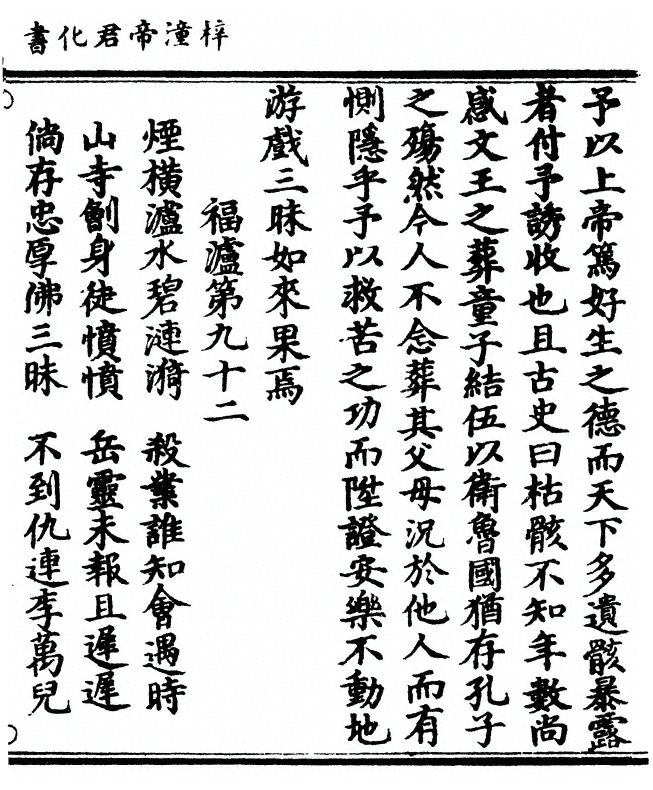 梓潼帝君化書
予以上帝篤好生之德而天下多遺骸暴露
者付予誘收也且古史曰枯骸不知年數尚
感文王之葬童子結伍以衛魯國猶存孔子
之殤然今人不念葬其父母況於他人而有
惻隱乎予以救苦之功而陞證安樂不動地
游戲三昧如來果焉
福瀘第九十二
煙橫瀘水碧漣漪 殺業誰知會遇時
山寺劊身徒憤憤 岳靈未報且遲遲
倘存忠厚佛三昧 不到仇連李萬兒